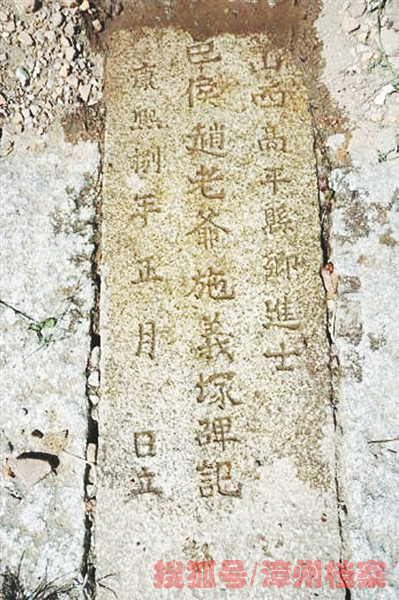 山西高平縣鄉進士
邑侯趙老爺施義塚碑記
康熙捌年正月 日立
搜狐号/漳州档案